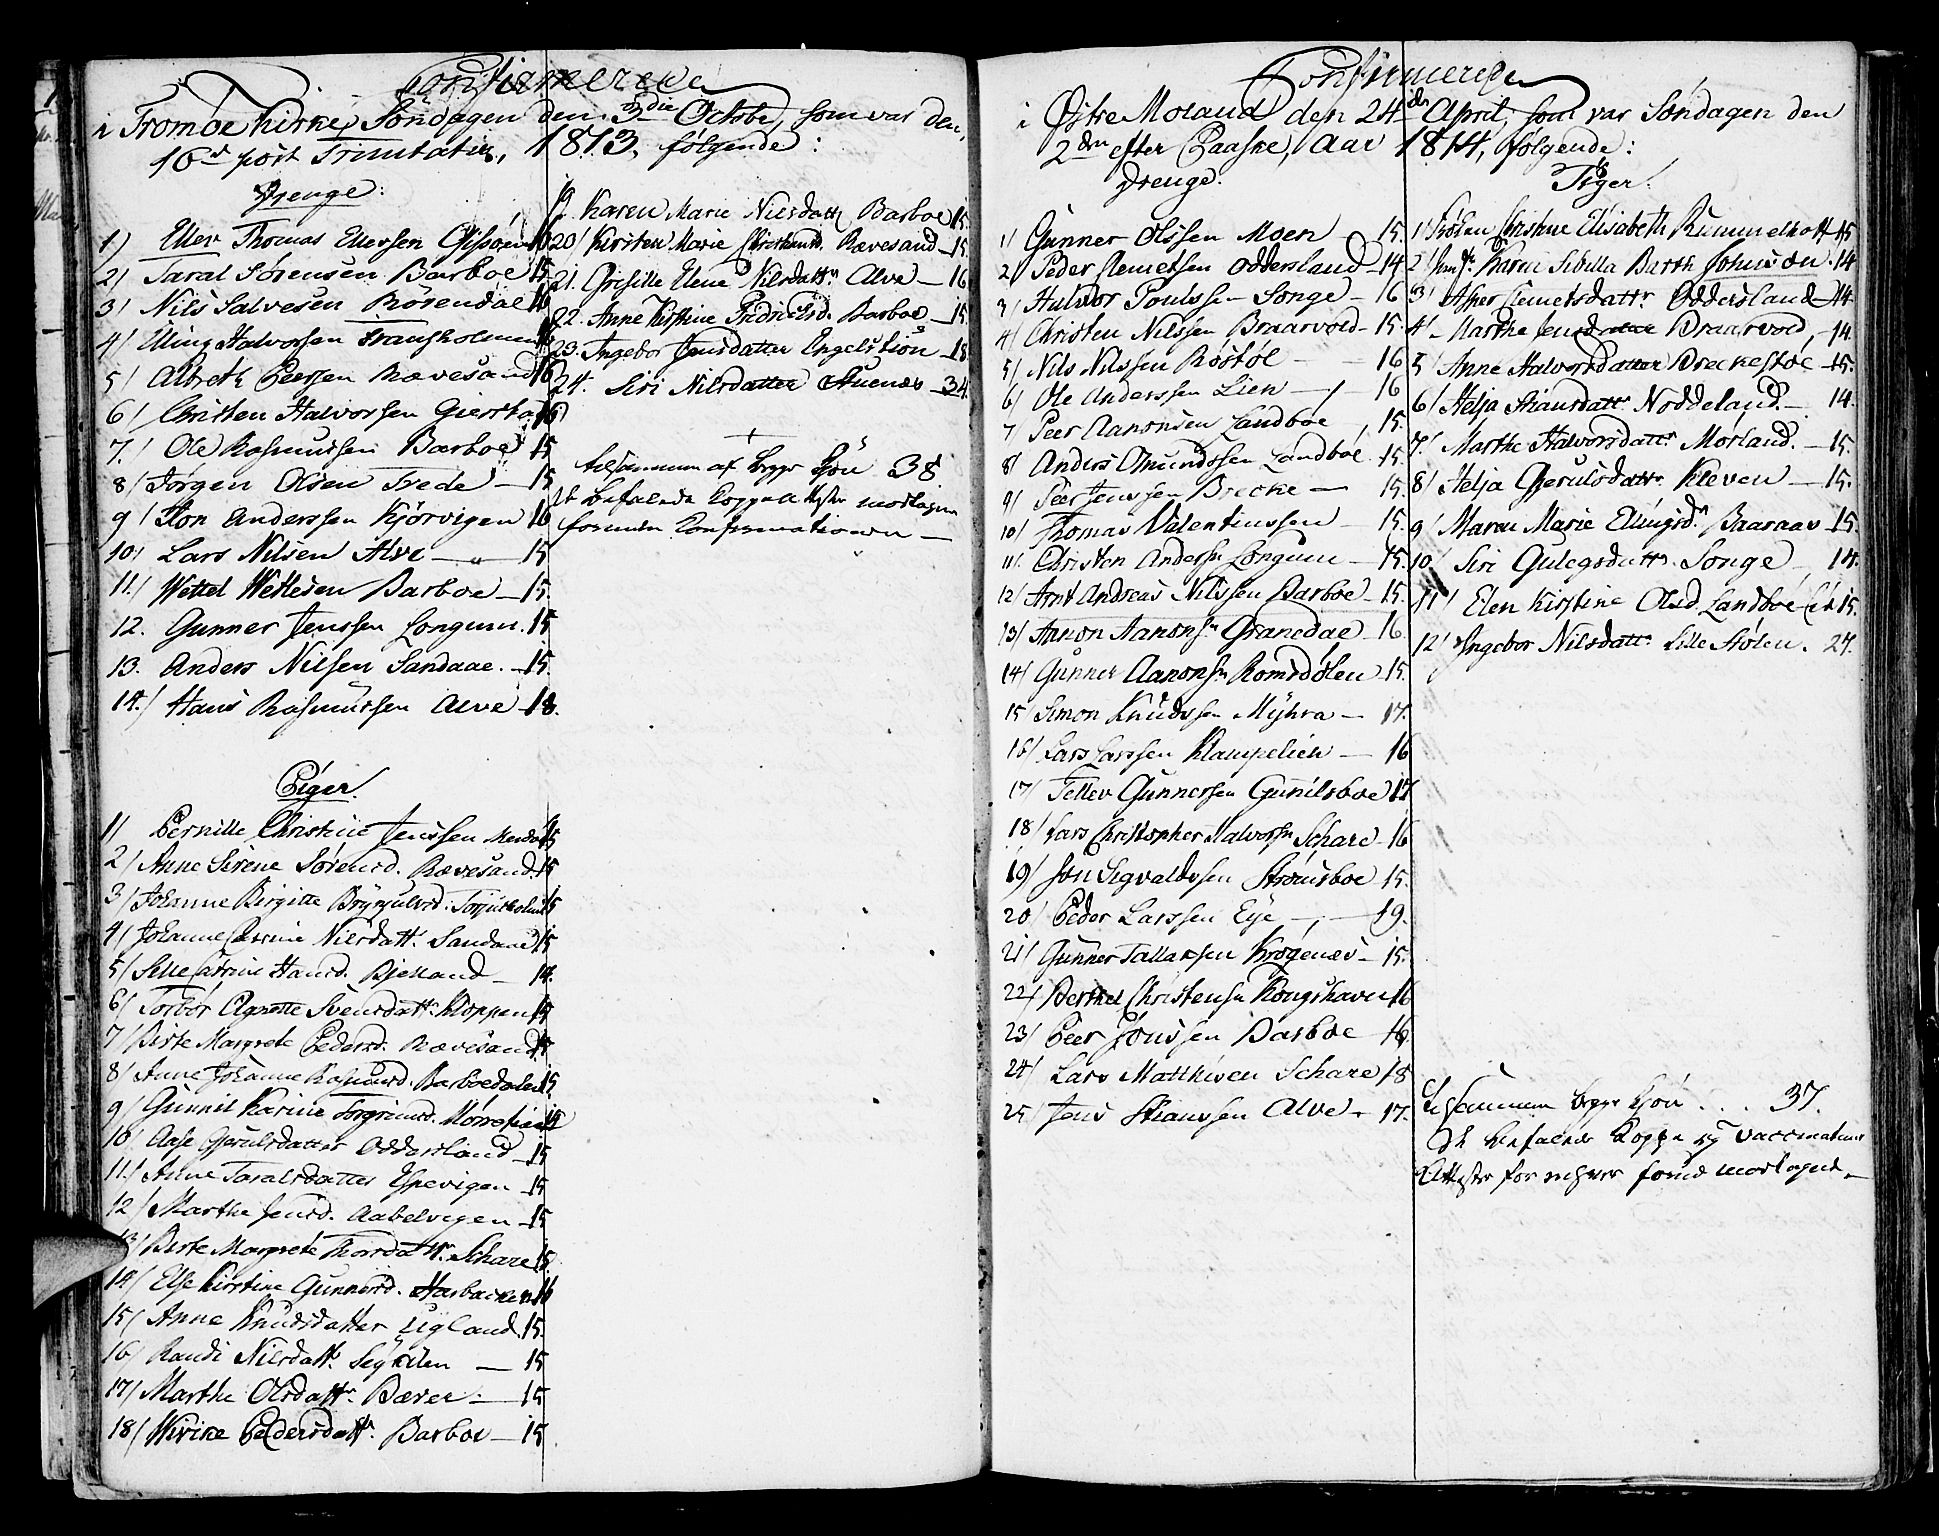 Confirmerede
i Tromöe Kirke, Söndagen den 3die Octobr, som var den
16d post Trinitatis, 1813, følgende:
Drenge:
1) Ellev Thomas Ellevsen
2) Taral Sørensen Barboe 15
3) Nils Salvesen Börendae 16
4) Elling Halvorsen
5) Albreth Peersen Rævesand 16
6) Christen Halvorsen
7.) Ole Rasmussen Barboe 15
8) Jørgen Olsen Trede - 15
9) Jon Anderssen Kjörvigen 16
10) Lars Nilsen Alve - 15
11.) Wettel Wetlesen Barboe - 15.
12. Gunner Jenssen Longum. 15
13. Anders Nilsen Sandaae. - 15.
14.) Hans Rasmussen Alve - 18.
Piger.
1) Pernille Christine Jenssen 15
2) Anne Serene Sörensd. Rævesand. 15
3) Johanne Birgitte 15
4) Johanne Cathrine Nilsdattr. Sandaae 15
5) Sille Cathrine Hansd. Bjelland - 14.
6) Torbor Agnette Svensdattr. Kloppen 15
7) Birte Margrete Pedersd. Rævesand
8) Anne Johanne Rasmusd. Barboedalen 15
9) Gunnil Karine
10) Aase Gjerulsdatter Oddersland - 15
11.) Anne Taralsdatter Espevigen - 15
12) Marthe Jensd. Aabelvigen - 15
13) Birte Margrete Thorsdattr. Schare 15.
14) Else Kirstine Gunnersd. Harbacken 16
15) Anne Knudsdatter Ugland. 15.
16) Randi Nilsdattr. - 15
17) Marthe Olsdattr. Bæver - 15
18) Wivike Peddersdattr. Barboe - 15
19. Karen Marie Nilsdattr Barboe 15.
20) Kirsten Marie Christensd. Rævesand - 15.
21. Grisille Elene Nilsdattr. Alve - 16
22. Anne Kirstine Fridrichsd. Barboe - 15
23. Ingebor Jensdatter Engelstiön - 18
24. Siri Nilsdatter Stuenæs - 34.
tilsammen af begge Kjön 38
De befalede Koppe Attester modtagne
forinden Confirmationen -
Confirmerede
i Östre Moland den 24de April, som var Søndagen den
2den efter Paaske, Aar 1814, følgende:
Drenge.
1) Gunner Olssen Moen 15.
2) Peder Clemetsen Oddersland - 14
3) Halvor Poulssen Songe - 16
4) Christen Nilssen Braarvold - 15.
5) Nils Nilssen Röstöl 16
6) Ole Anderssen Lien - 16
7) Peer Aanonsen Landboe, 15.
8) Anders Omundssen Landboe. 15.
9) Peer Jenssen Brecke - 15.
10) Thomas Valentinssen - 15.
11) Christen Andersn Longum - 15.
12) Arnt Andreas Nilssen Barboe - 15.
13) Aanon Aanonsn Granedae - 16.
14) Gunner Aanonsn Romsdölen - 15.
15) Simon Knudssen Myhra - 17.
16) Lars Larssen Klampelien - 16
17) Tellev Gunnersen Gunilsboe 17
18) Lars Christopher Halvorsn Schare - 16
19) Jon Sigvaldssen Strömsboe 15.
20) Peder Larssen Eye - 19.
21) Gunner Tallaksen Krogenæs - 15.
22) Berthel Christensn Kongshavn 16
23) Peer Jonssen Barboe 16.
24) Lars Matthisen Schare 18
25) Jens Stianssen Alve - 17.
Piger.
1) Frøken Christine Elisabeth Rummelhoff 15
2) Jomfr. Karen Sibilla Barth Johnson. 14
3) Asper Clemetsdattr. Oddersland - 14.
4) Marthe Jensdatter Braarvold, - 14.
5) Anne Halvorsdatter Breckestøe - 15.
6) Helja Stiansdattr. Noddeland. - 14.
7.) Marthe Halvorsdattr Mörland. - 15.
8) Helja Gjerulsdattr. Kleven - 15.
9) Maren Marie Ellingsd. Baaraas - 15
10) Siri Gulegsdattr. Songe - 14.
11) Elen Kirstine Olsd. Landboe 15.
12) Ingebor Nilsdattr. Lille Stølen. 27.
Tilsammen begge Kjön . . . 37.
De befalede Koppe og Vaccinations
Attester for enhver forud modtaget. -